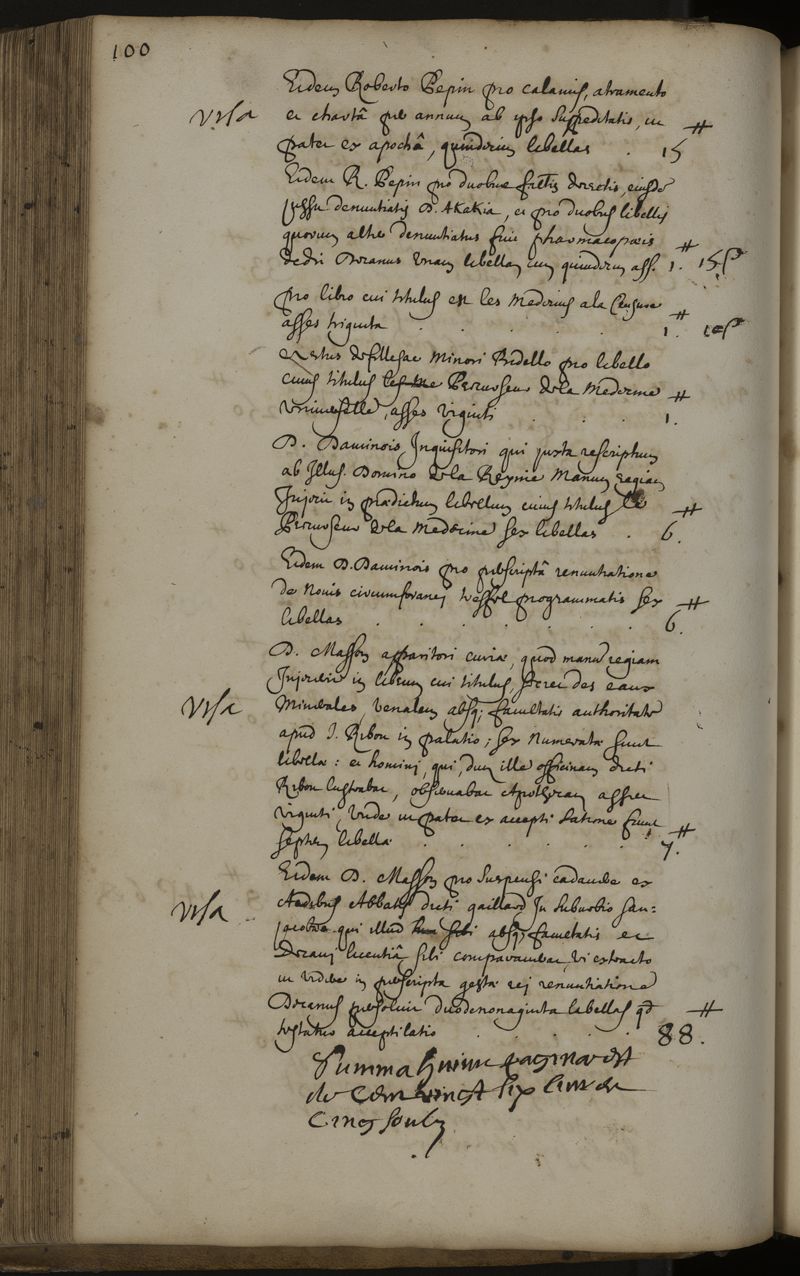 100
Eidem Roberto Pepin pro calamis, atramento
visa et chartâ per annum ab ipso suppeditatis, ut
patet ex apochâ, quindecim libellas . 15 ₶
Eidem R. Pepin pro duobus decretis
jussu denuntiatis D. Akakia, et pro duobus libellis
quorum alter denuntiatus fuit pharmacopœis
dedit Decanus unam libellam cum quindecim ass. 1 ₶. 15 s
pro libro cui titulus est les Medecins a la Censure
asses triginta . . . . . 1 ₶. 10 s
Minori Bidello pro libello
cuius titulus de la Medecine
universelle, asses viginti . . . 1 ₶.
D. Daminois Inquisitori qui juxta rescriptum
ab Illus. Domino de la Reynie Manum regiam
Injecit in prædictum libellum cuius titulus Le
de la Medecine sex libellas . 6 ₶.
Eidem D. Daminois pro renuntiatione
de Novis circumforanei programmatis sex
libellas . . . . . . . 6 ₶.
D. Masson apparitori curiæ, quod manum regiam
Injecerit in librum cui titulus, secret des eaux
visa Minerales venalem absq; facultatis authoritate
apud J. Ribou in palatio; sex numeratæ sunt
libellæ: et homini, qui, dum ille officinam dicti
Ribou lustrabat, observabat asses
viginti, unde ut patet ex accepti latione sunt
septem libellæ . . . . . . 7 ₶.
Eidem D. Masson pro suspensi cadavere ex
visa Aedibus Abbatis dicti gaillard In suburbio san=
jacobeo qui illud sibi absq; facultatis et
Decani licentiâ sibi comparaverat, ut extracto
ut videre in gestæ rei renuntiatione
Decanus persolvit duodenonaginta libellas qd
testatur acceptilatio . . . . . 88 ₶.
Summa huiuce paginae est
de Cent vingt six livres
Cinq souls